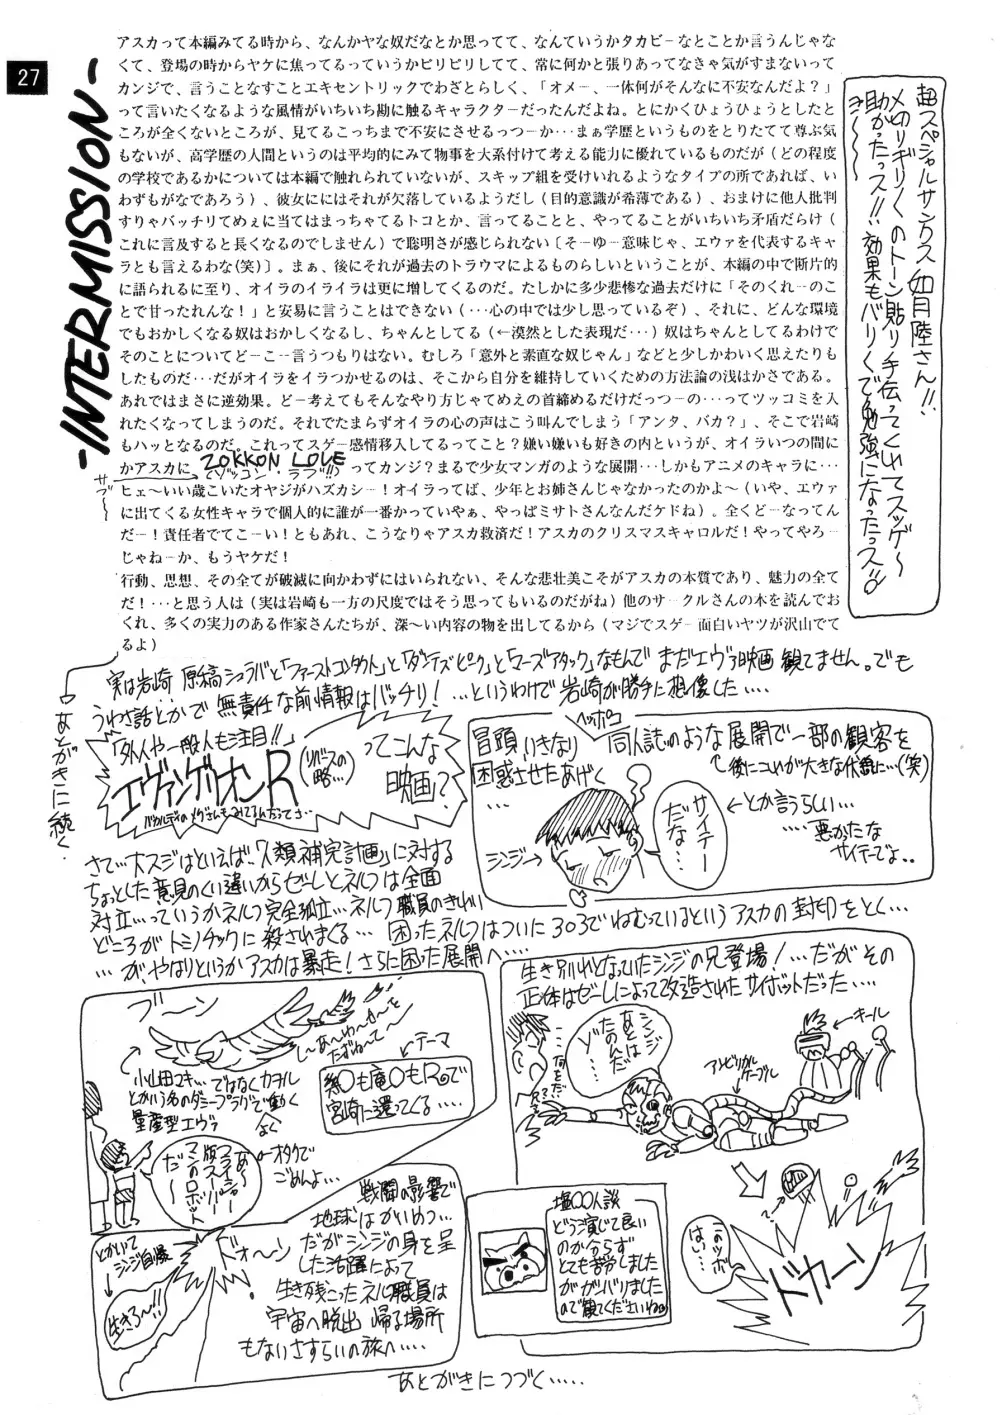 27
-INTERMISSION-
アスカって本編みてる時から、なんかヤな奴だなとか思ってて、なんていうかタカビーなとことか言うんじゃな
くて、登場の時からヤケに焦ってるっていうかピリピリしてて、常に何かと張りあってなきゃ気がすまないって
カンジで、言うことなすことエキセントリックでわざとらしく、「オメー、一体何がそんなに不安なんだよ？」
って言いたくなるような風情がいちいち勘に触るキャラクターだったんだよね。とにかくひょうひょうとしたと
ころが全くないところが、見てるこっちまで不安にさせるっつーか･･･まぁ学歴というものをとりたてて尊ぶ気
もないが、高学歴の人間というのは平均的にみて物事を大系付けて考える能力に優れているものだが（どの程度
の学校であるかについては本編で触れられていないが、スキップ組を受けいれるようなタイプの所であれば、い
わずもがなであろう）、彼女ににはそれが欠落しているようだし（目的意識が希薄である）、おまけに他人批判
すりゃバッチリてめぇに当てはまっちゃてるトコとか、言ってることと、やってることがいちいち矛盾だらけ（
これに言及すると長くなるのでしません）で聡明さが感じられない〔そーゆー意味じゃ、エヴァを代表するキャ
ラとも言えるわな(笑)〕。まぁ、後にそれが過去のトラウマによるものらしいということが、本編の中で断片的
に語られるに至り、オイラのイライラは更に増してくるのだ。たしかに多少悲惨な過去だけに「そのくれーのこ
とで甘ったれんな！」と安易に言うことはできない（･･･心の中では少し思っているぞ）、それに、どんな環境
でもおかしくなる奴はおかしくなるし、ちゃんとしてる（←漠然とした表現だ･･･）奴はちゃんとしてるわけで
そのことについてどーこー言うつもりはない。むしろ「意外と素直な奴じゃん」などと少しかわいく思えたりも
したものだ･･･だがオイラをイラつかせるのは、そこから自分を維持していくための方法論の浅はかさである。
あれではまさに逆効果。どー考えてもそんなやり方じゃてめえの首締めるだけだっつーの･･･ってツッコミを入
れたくなってしまうのだ。それでたまらずオイラの心の声はこう叫んでしまう「アンタ、バカ？」、そこで岩崎
もハッとなるのだ。これってスゲー感情移入してるってこと？嫌い嫌いも好きの内というが、オイラいつの間に
かアスカに ZOKKON LOVE ってカンジ？まるで少女マンガのような展開･･･しかもアニメのキャラに･･･
〜ゾッコン・ラブ!!〜
サブ〜
ヒェ〜いい歳こいたオヤジがハズカシー！オイラってば、少年とお姉さんじゃなかったのかよ〜（いや、エヴァ
に出てくる女性キャラで個人的に誰が一番かっていやぁ、やっぱミサトさんなんだケドね）。全くどーなってん
だー！責任者でてこーい！ともあれ、こうなりゃアスカ救済だ！アスカのクリスマスキャロルだ！やってやろー
じゃねーか、もうヤケだ！
行動、思想、その全てが破滅に向かわずにはいられない、そんな悲壮美こそがアスカの本質であり、魅力の全て
だ！･･･と思う人は（実は岩崎も一方の尺度ではそう思ってもいるのだがね）他のサークルさんの本を読んでお
くれ、多くの実力のある作家さんたちが、深〜い内容の物を出してるから（マジでスゲー面白いヤツが沢山でて
るよ）
超スペシャルサンクス 如月 陸さん!!
〆切りギリ〱のトーン貼り手伝ってくれてスッゲ〜
助かったっス!! 効果もバリ〱で勉強になったっス
き〜〜
あとがきに続く
実は岩崎 原稿シュラバと「ファーストコンタクト」と「ダンテズピーク」と「マーズアタック」なもんで まだエヴァ映画 観てません。でも
うわさ話とかで 無責任な前情報はバッチリ！ …というわけで岩崎が勝手に想像した‥‥
「外人や一般人も注目!!」
エヴァンゲリオンR
(リバースの略…)
ってこんな
映画？
冒頭いきなり ヘッポコ 同人誌のような展開で一部の観客を
困惑させたあげく
…
後にこいが大きな伏線に…(笑)
シンジ
サイテーだな…
←とか言うらしい…
‥‥悪かたな
サイテーでよ‥
さて…大スジはといえば、「人類補完計画」に対する
ちょっとした意見のくい違いからゼーレとネルフは全面
対立…っていうかネルフ完全孤立…ネルフ職員のきわい
どころがトミノチックに殺されまくる… 困ったネルフはついに303でねむっているというアスカの封印をとく…
…が、やはりというかアスカは暴走！さらに困った展開へ‥‥
ブーン
小山田マキ…ではなくカヲル
とかいう名のダミープラグで動く
量産型エヴァ
なぐ
〜あ〜ゆ〜さ〜と
たずね〜て〜
テーマ
糸〇も庵〇もRので
宮崎に還ってくる‥‥
あ〜
フライシャー版
スーパーマンのロボットだ〜
←オタクで
ごめんよ…
戦闘の影響で
地球はかいめつ…
だがシンジの身を呈
した活躍によって
生き残こったネルフ職員は
宇宙へ脱出 帰る場所
もないさすらいの旅へ‥‥
ドォ〜ン
とかいて
シンジ自爆
生きろ〜!!!
生き別れとなっていたシンジの兄登場！…だがその
正体はゼーレによって改造されたサイボットだった‥‥
何をだ!?
シンジ
あとはたのんだゾ
アンビリカル
ケーブル
←キール
このツボはいい…
ドカーン
塩〇〇人談
どう演じて良い
のか分らず
とても苦労しました
がガンバリました
ので観てくださいね
あとがきにつづく‥‥‥